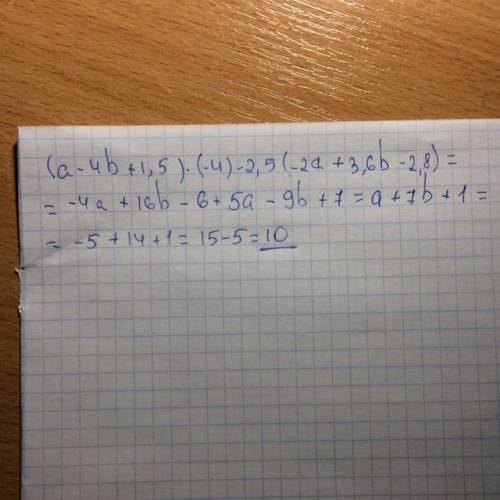 (a - 4b + 1,5) · (-4) - 2,5 (-2a + 3,6b - 2,8) =
= -4a + 16b - 6 + 5a - 9b + 7 = a + 7b + 1 =
= -5 + 14 + 1 = 15 - 5 = 10